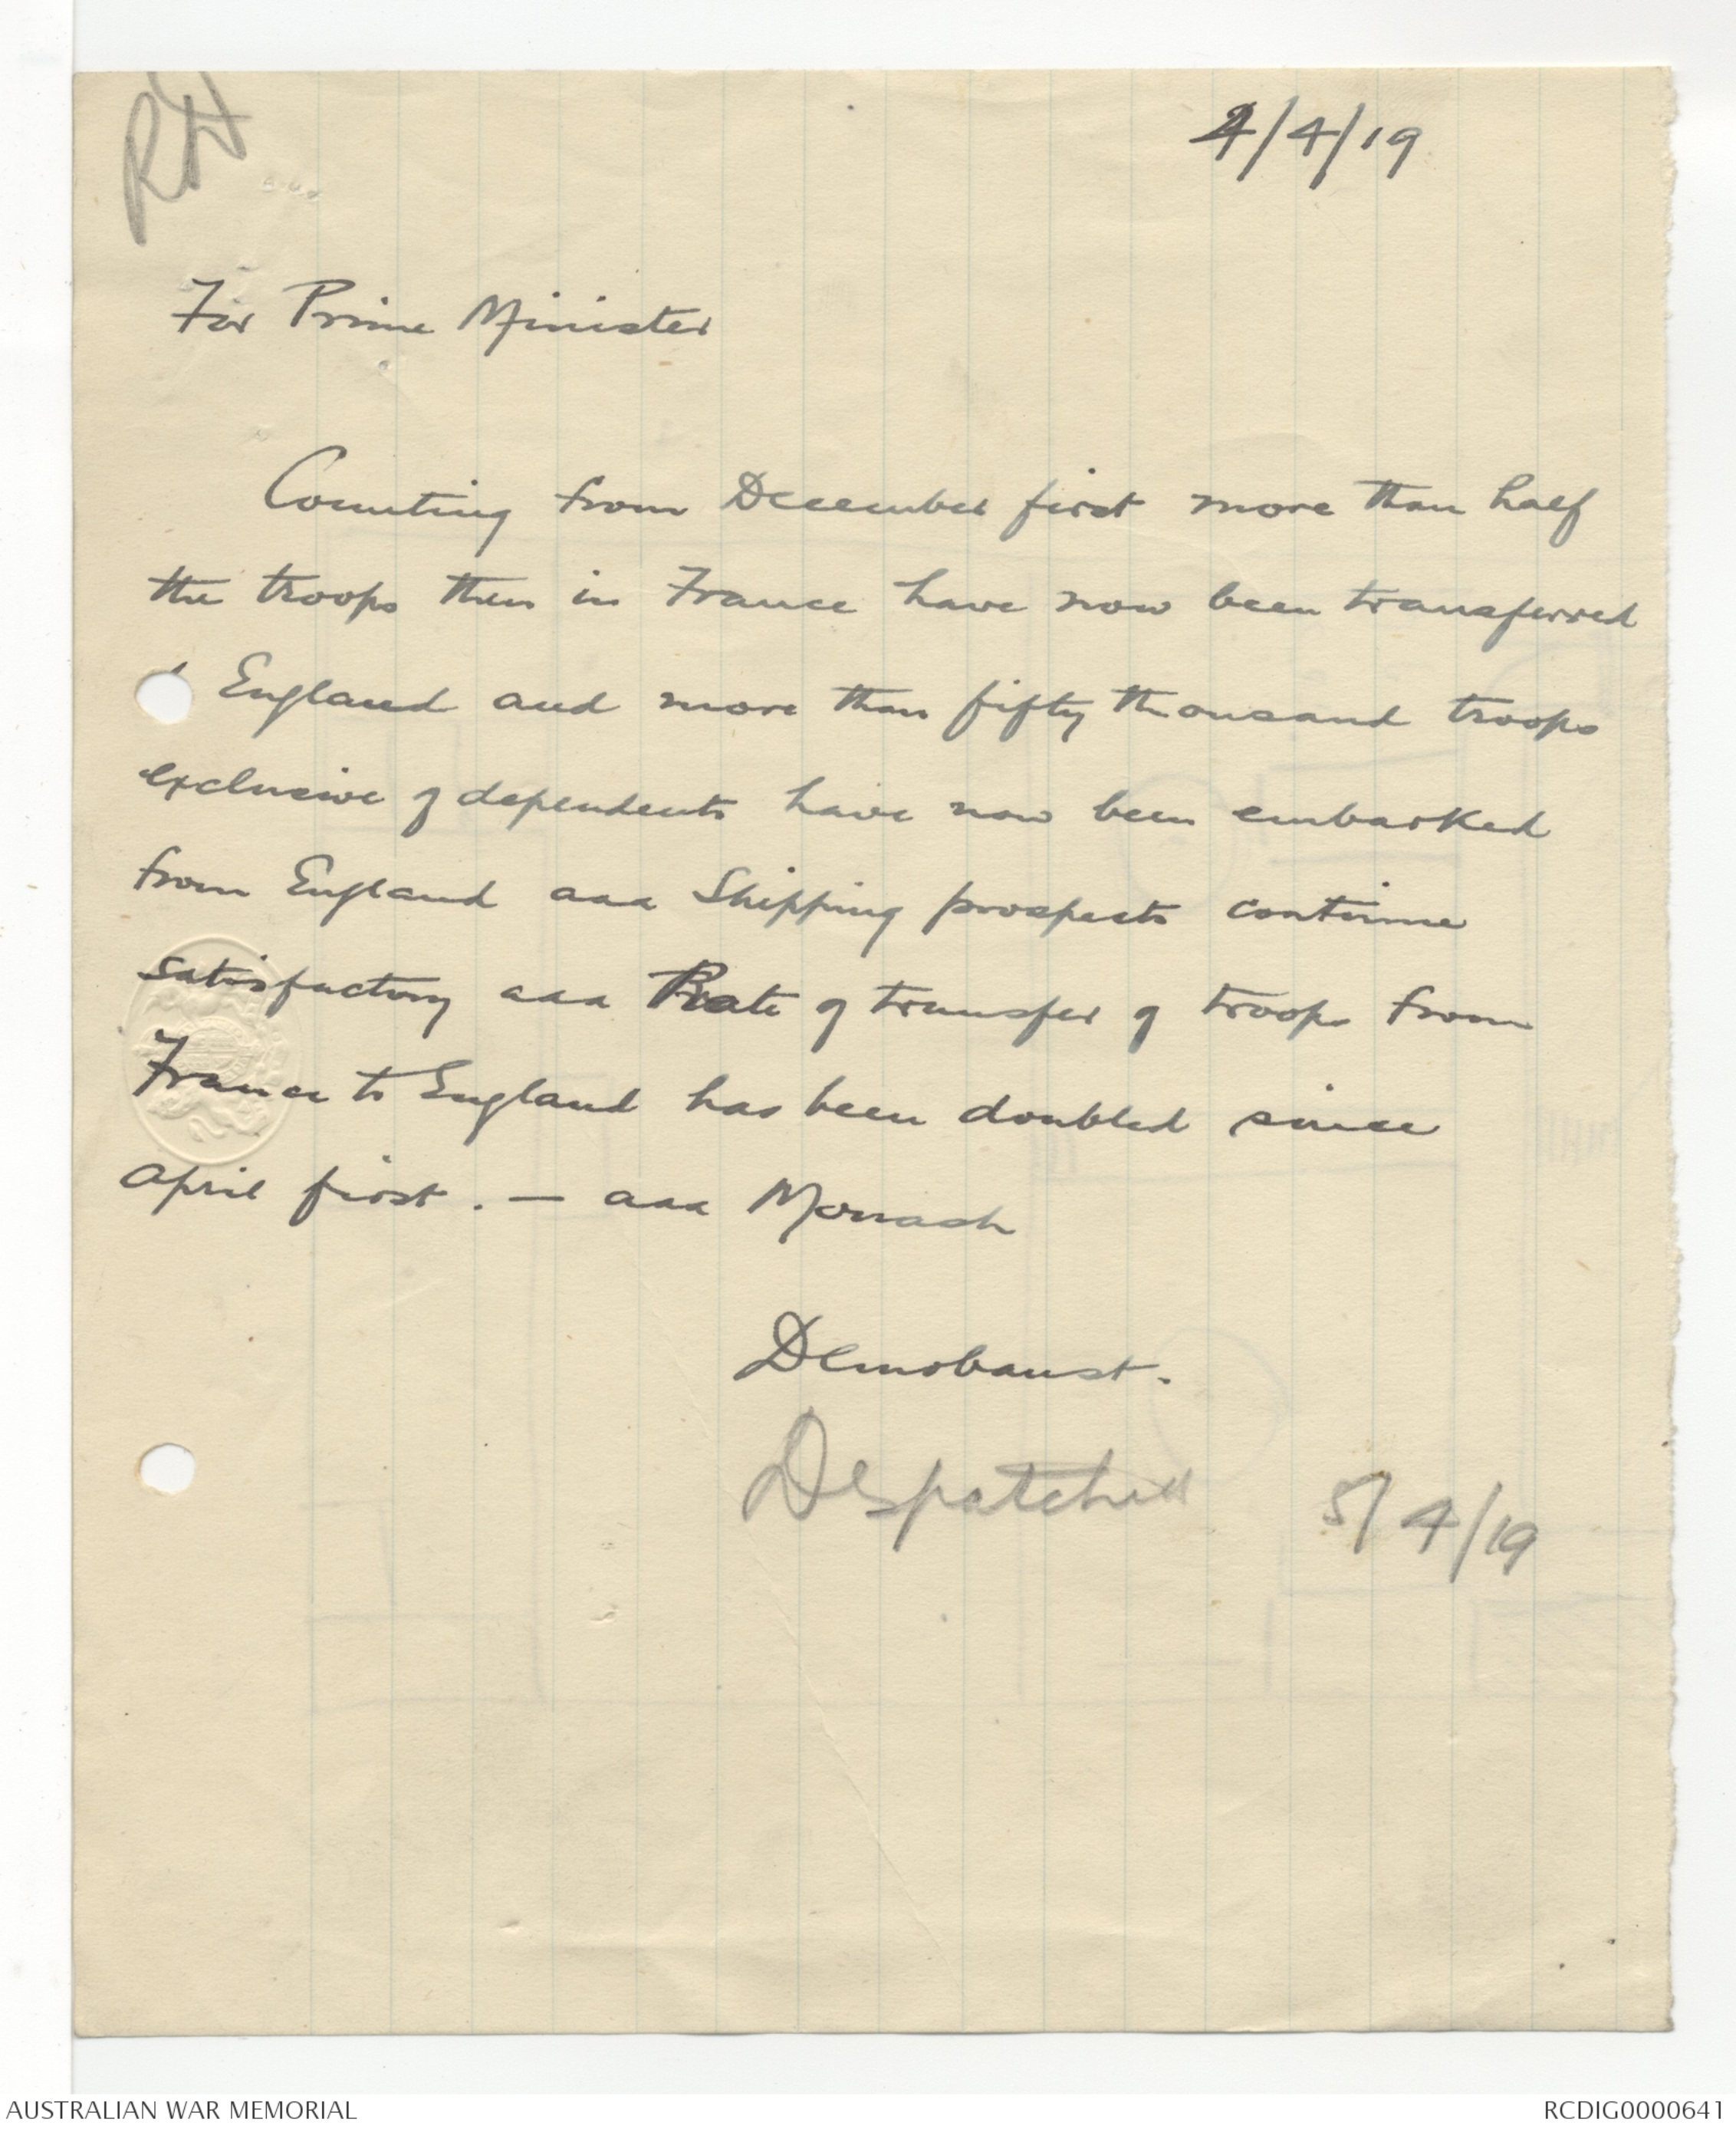 4/4/19
For Prime Minister
Counting from December first more than half
the troops then in France have now been transferred
England and more than fifty thousand troops
exclusive of dependents have now been embarked
from England aaa Shipping prospects continue
satisfactory aaa Rate of transfer of troops from
France to England has been doubled since
April first. — aaa Monash
Demobaust.
Despatched 5/4/19
AUSTRALIAN WAR MEMORIAL
RCDIG0000641